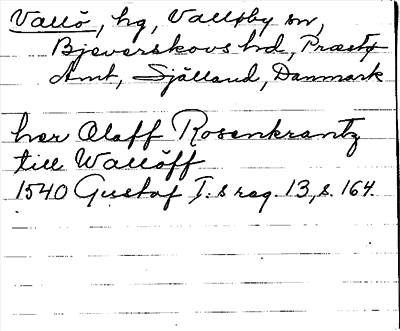 Vallö, hg, Vallöby sn,
Bjeverskovs hd, Præstø
Amt, Sjålland, Danmark
her Olaff Rosenkrantz
till Wallöff
1540 Gustaf I:s reg. 13, s. 164.